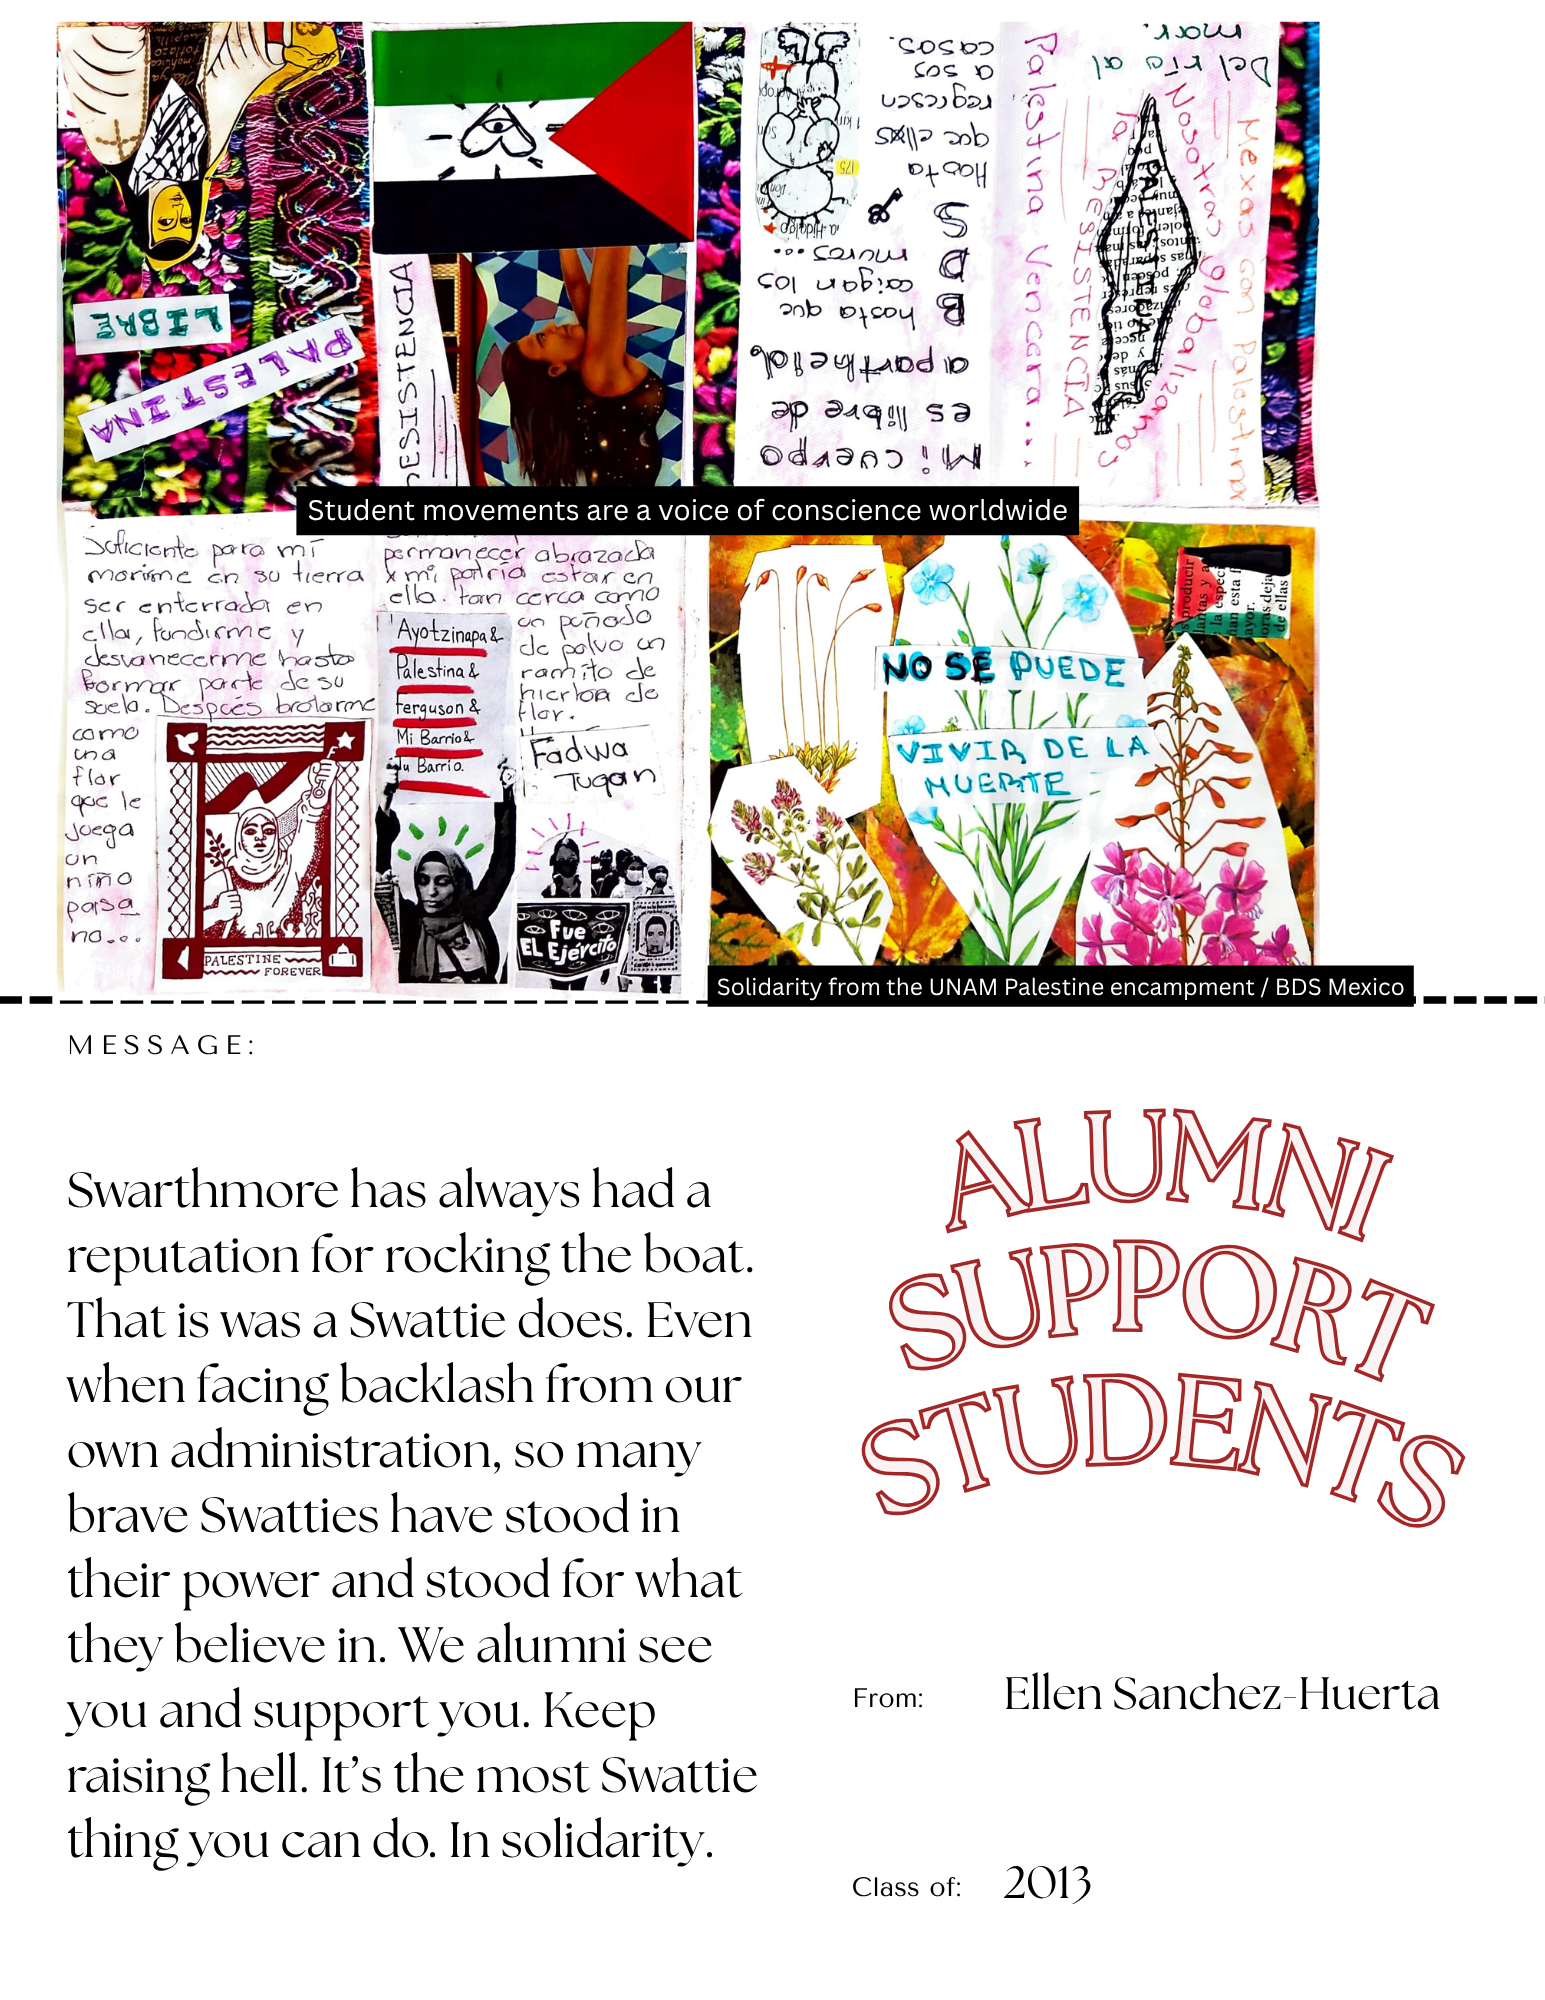 LIBRE
PALESTINA
RESISTENCIA
Mi cuerpo
es libre de
apartheid
hasta que
caigan los
muros...
B
D
S
Hasta
que ellxs
regresen
a sus
casas.
175
Palestina Vencera...
la RESISTENCIA
Nosotras globalizamos
PALESTINA
Mexas con Palestina
Del río al
mar.
Student movements are a voice of conscience worldwide
Suficiente para mí
morirme en su tierra
ser enterrada en
ella, fundirme y
desvanecerme hasta
formar parte de su
suelo. Después brotarme
como
una
flor
que le
juega
un
niño
paisa
no...
PALESTINE
FOREVER
permanecer abrazada
x mi patria estar en
ella. tan cerca como
un puñado
de polvo un
ramito de
hierba de
flor.
Fadwa
Tuqan
Ayotzinapa &
Palestina &
Ferguson &
Mi Barrio &
Tu Barrio.
Fue
EL Ejército
NO SE PUEDE
VIVIR DE LA
MUERTE
Solidarity from the UNAM Palestine encampment / BDS Mexico
MESSAGE:
Swarthmore has always had a
reputation for rocking the boat.
That is was a Swattie does. Even
when facing backlash from our
own administration, so many
brave Swatties have stood in
their power and stood for what
they believe in. We alumni see
you and support you. Keep
raising hell. It's the most Swattie
thing you can do. In solidarity.
ALUMNI
SUPPORT
STUDENTS
From: Ellen Sanchez-Huerta
Class of: 2013